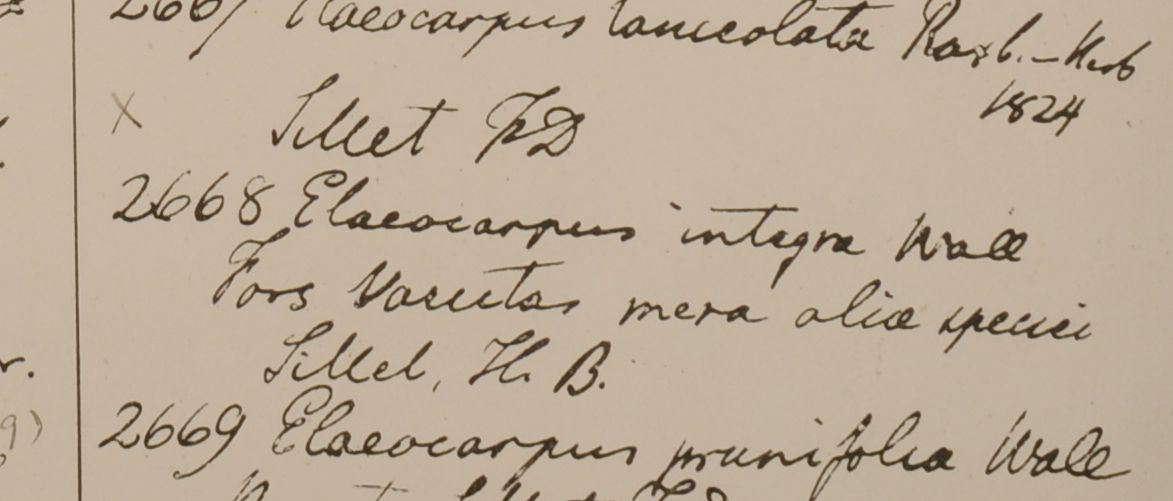 2667 Elaeocarpus lanceolata Roxb. - Herb
1824
Sillet FD
2668 Elaeocarpus integra Wall
Fors Varietas mera aliae speciei
Sillet, H. B.
2669 Elaeocarpus prunifolia Wall